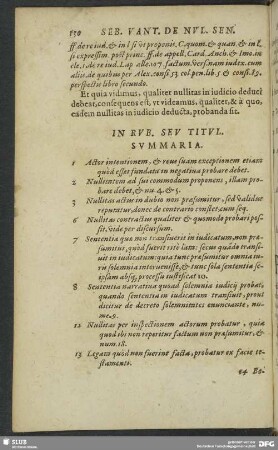 150 SEB. VANT. DE NVL. SEN.
ff. de re iud. & in l. si ut proponis. C. quom. & quan. & in l.
si expressim. post princ. ff. de appell. Card. Anch. & Imo. in
cle. 1. de re iud. Lap. alle. 107. factum. Vers. nam iudex. cum
alijs. de quibus per Alex. consi. 53. col. pen. lib. 5. & consi. 89.
perspectis libro secundo.
Et quia vidimus, qualiter nullitas in iudicio deduci
debeat, consequens est, vt videamus, qualiter, & à quo,
eadem nullitas in iudicio deducta, probanda sit.
IN RVB. SEV TITVL.
SVMMARIA.
1 Actor intentionem, & reus suam exceptionem etiam
quòd esset fundata in negatiua probare debet.
2 Nullitatem ad sui commodum proponens, illam pro-
bare debet, & nu. 4. & 5.
3 Nullitas actus in dubio non præsumitur, sed validus
reputatur, donec de contrario constet. cum seq.
6 Nullitas contractus qualiter & quomodo probari pos-
sit. vide per discursum.
7 Sententia quæ non transiuerit in iudicatum, non præ-
sumitur, quòd fuerit ritè lata: secus quãdo transi-
uit in iudicatum: quia tunc præsumitur omnia iu-
ris solemnia interuenisse, & tunc sola sententia se-
ipsam absq; processu iustificat. 10.
8 Sententia narratiua quòd solemnia iudicij probat,
quando sententia in iudicatum transiuit, prout
dicitur de decreto solemnitates enunciante, nu-
me. 9.
12 Nullitas per inspectionem actorum probatur, quia
quod ibi non reperitur factum non præsumitur, &
num. 18.
13 Legata quòd non fuerint facta, probatur ex facie te-
stamenti.
SLUB
DFG